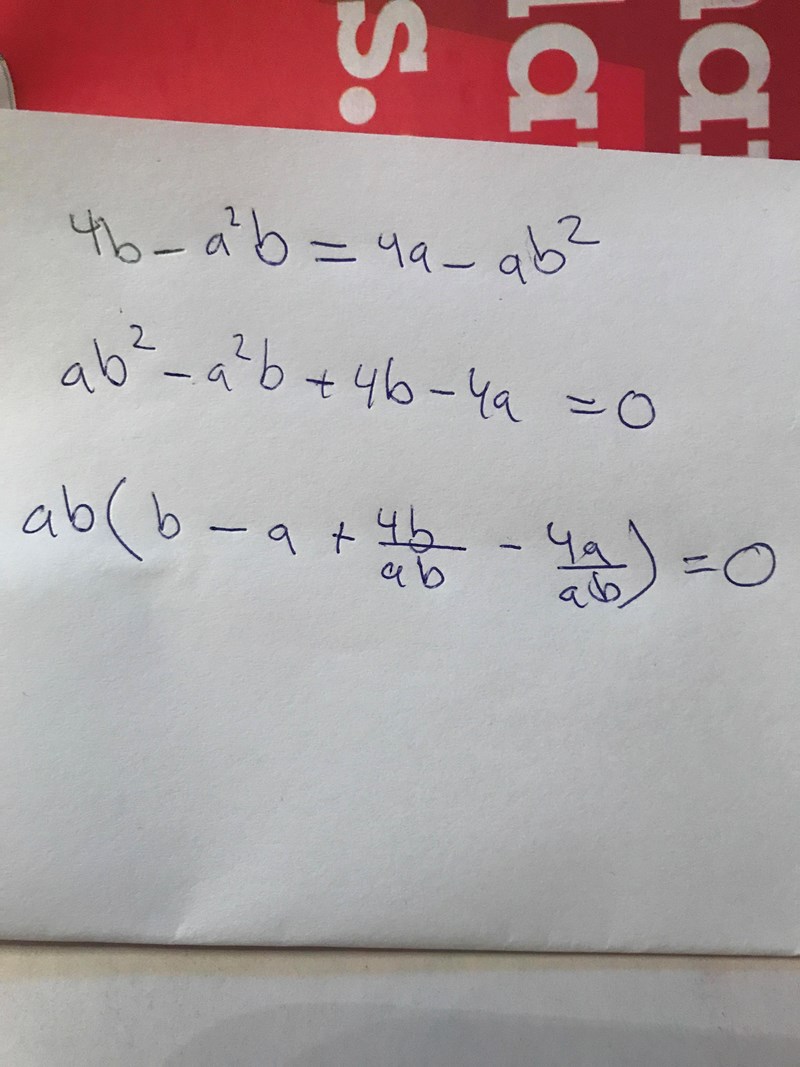 s.
la
na
4b - a²b = 4a - ab²
ab² - a²b + 4b - 4a = 0
ab(b - a + 4b/ab - 4a/ab) = 0